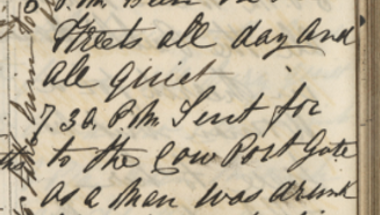 P.M. Been in
Streets all day and
all quiet
7.30. P.M. Sent for
to the Cow Port Gate
as a man was drunk